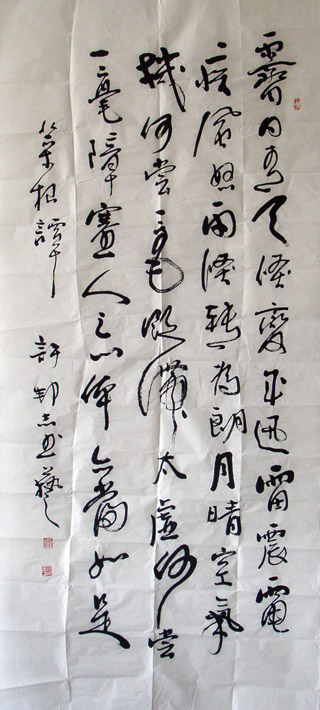 霽日青天倏變為迅雷震電
疾風怒雨倏轉為朗月晴空氣
機何嘗一毫凝滯太虛何嘗
一毫障塞人之心体亦當如是
菜根譚 許邦志